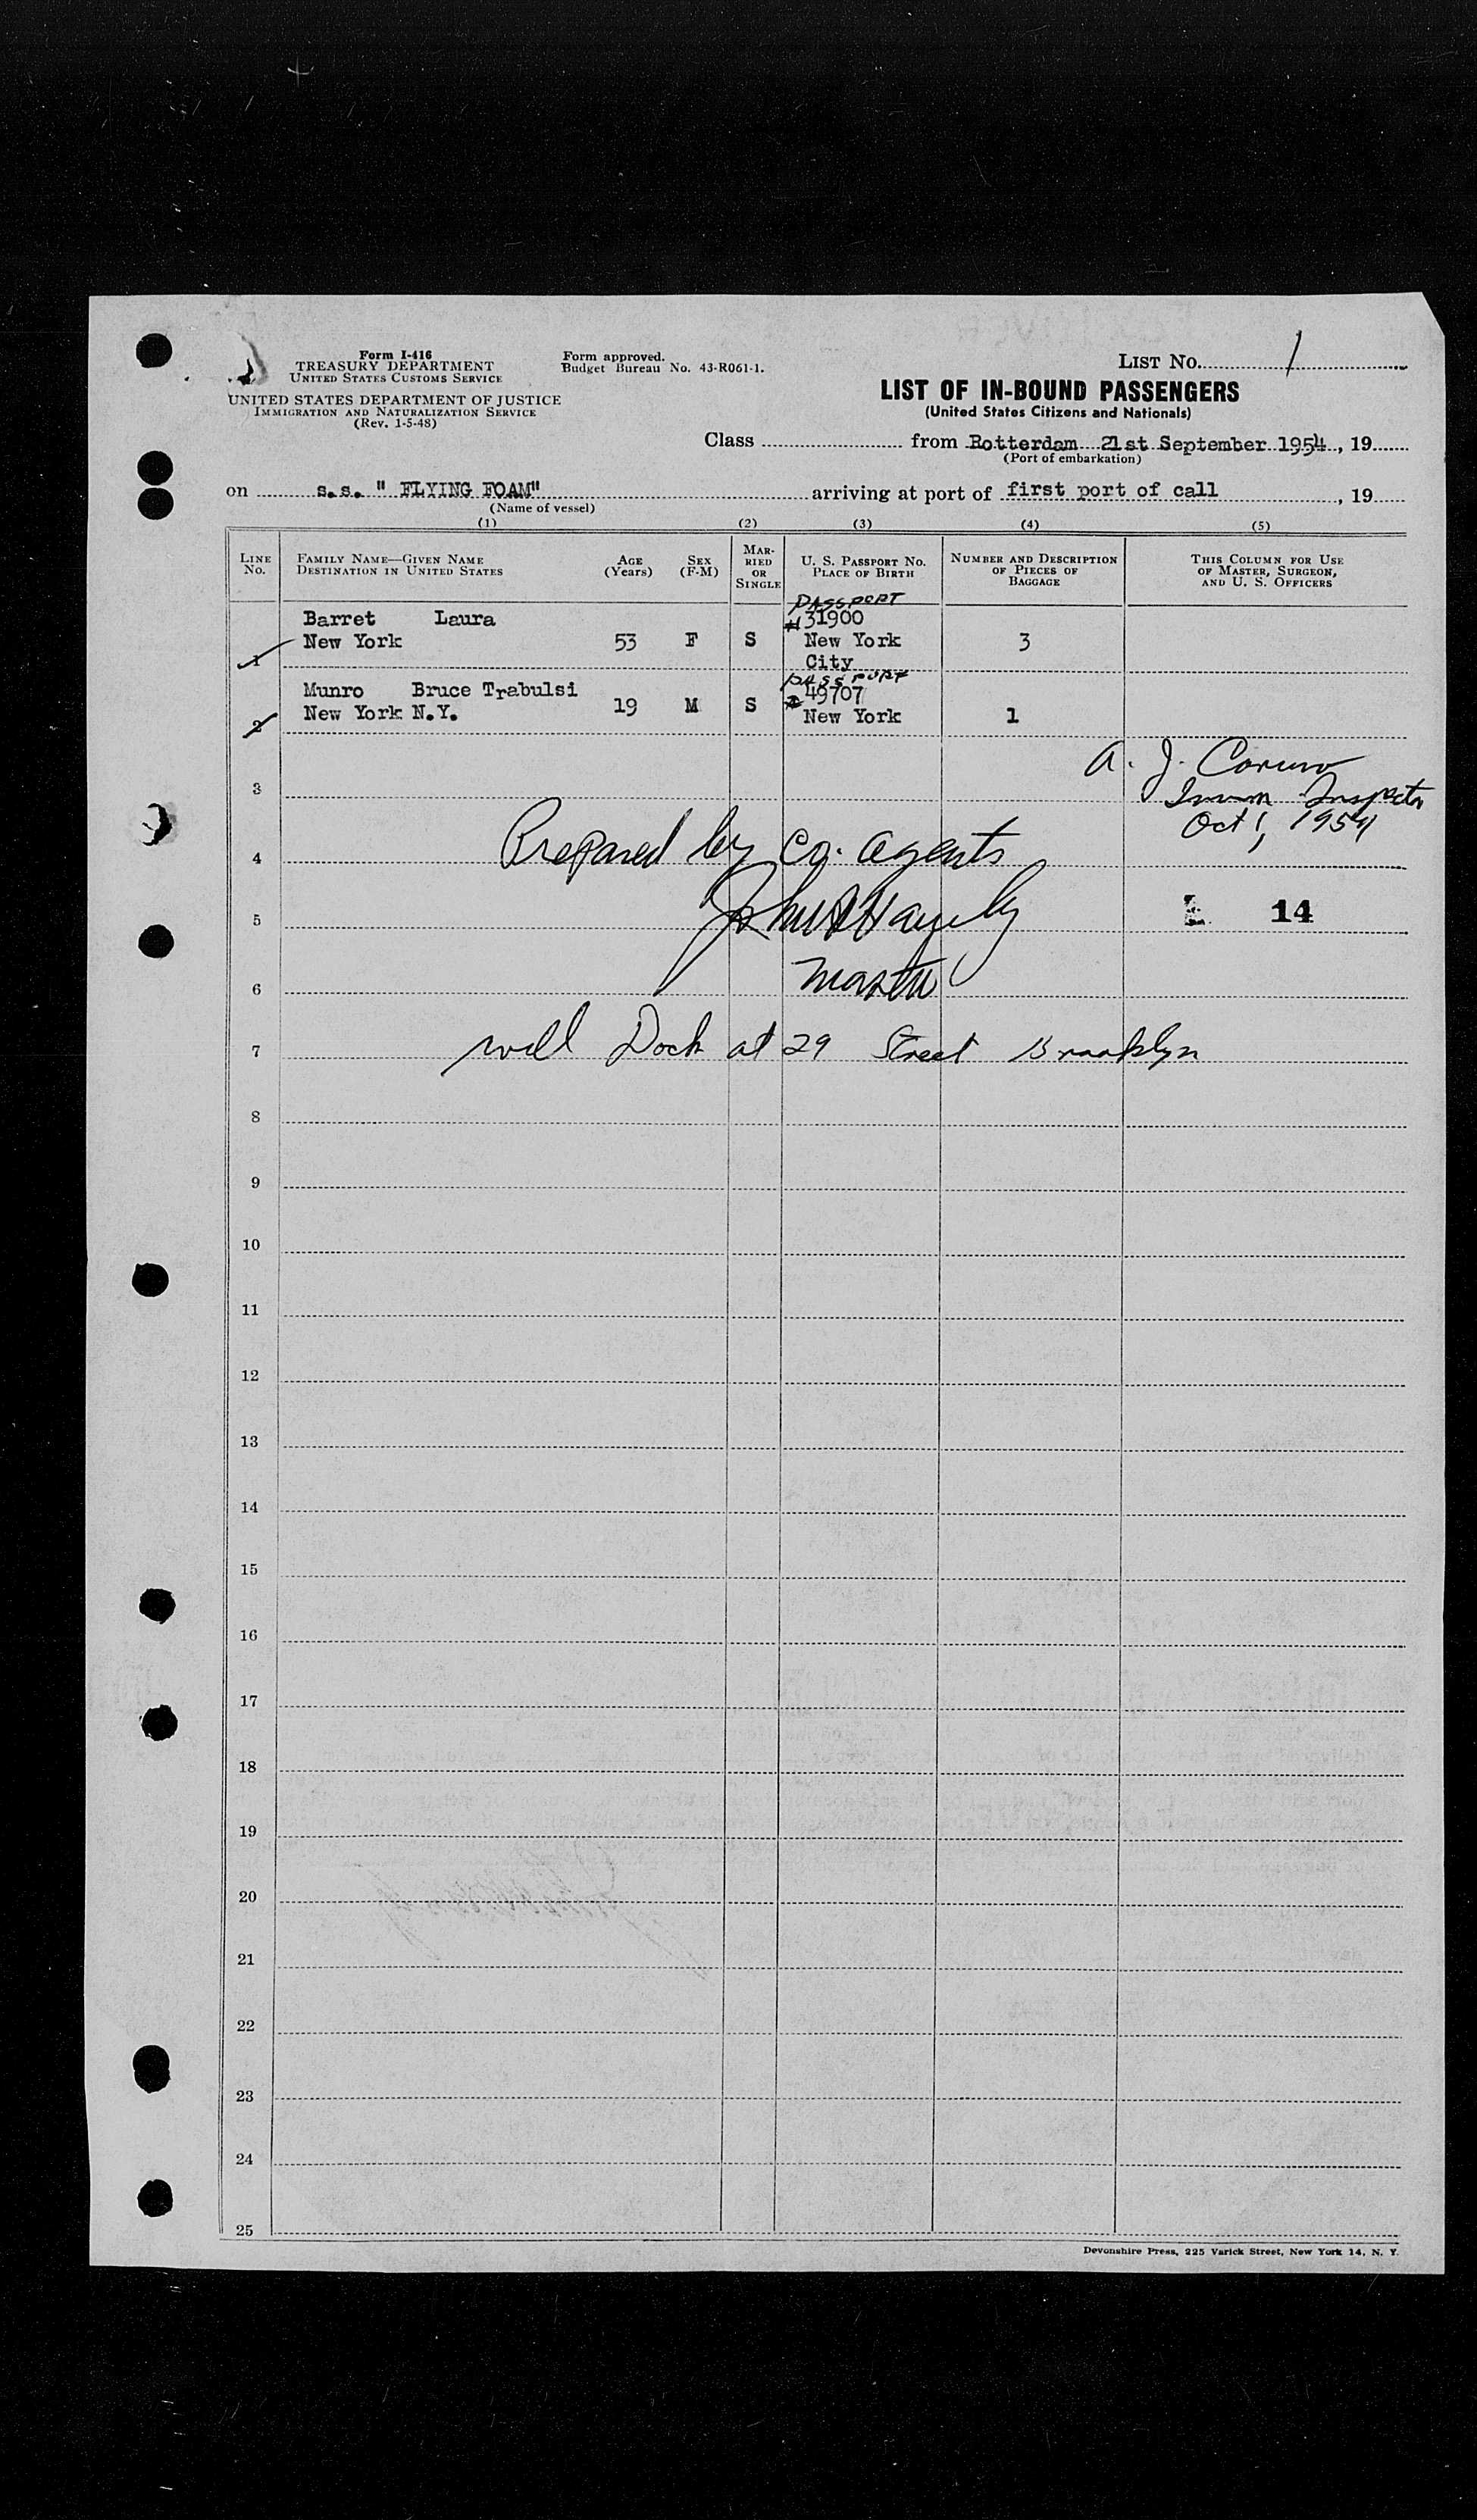 Form I-416
TREASURY DEPARTMENT
UNITED STATES CUSTOMS SERVICE
UNITED STATES DEPARTMENT OF JUSTICE
IMMIGRATION AND NATURALIZATION SERVICE
(Rev. 1-5-48)
Form approved.
Budget Bureau No. 43-R061-1.
LIST NO. 1
LIST OF IN-BOUND PASSENGERS
(United States Citizens and Nationals)
Class from Rotterdam 21st September 1954, 19
(Port of embarkation)
on s.s. " FLYING FOAM" arriving at port of first port of call, 19
(Name of vessel)
(1) (2) (3) (4) (5)
LINE No. FAMILY NAME—GIVEN NAME DESTINATION IN UNITED STATES AGE (Years) SEX (F-M) MARRIED OR SINGLE U. S. PASSPORT NO. PLACE OF BIRTH NUMBER AND DESCRIPTION OF PIECES OF BAGGAGE THIS COLUMN FOR USE OF MASTER, SURGEON, AND U. S. OFFICERS
PASSPORT
Barret Laura #31900
New York 53 F S New York 3
1 City
PASSPORT
Munro Bruce Trabulsi #49707
New York N.Y. 19 M S New York 1
2
A. J. Caruso
3 Immn Inspector
Oct 1, 1954
4 Prepared by Co. agents
5 L 14
6 Master
7 will Dock at 29 Street Brooklyn
8
9
10
11
12
13
14
15
16
17
18
19
20
21
22
23
24
25
Devonshire Press, 225 Varick Street, New York 14, N. Y.